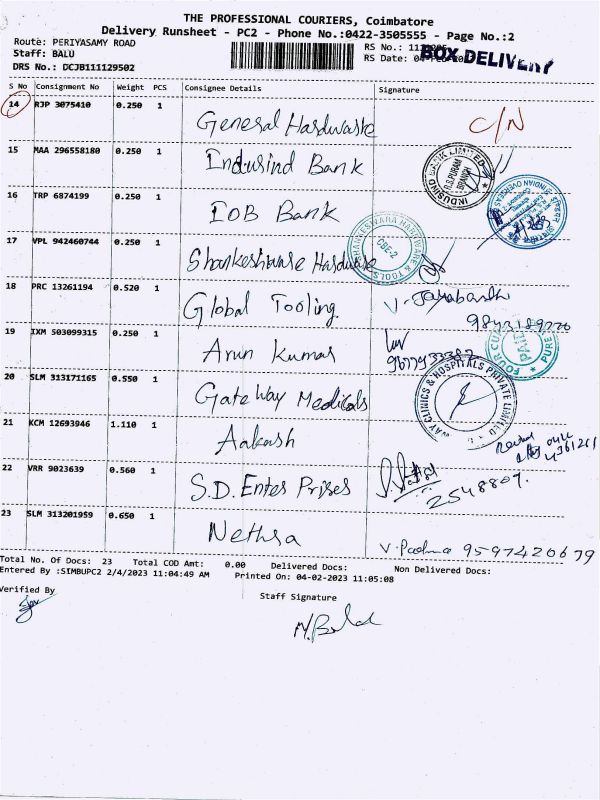 THE PROFESSIONAL COURIERS, Coimbatore
Delivery Runsheet - PC2 - Phone No.:0422-3505555 - Page No.:2
Route: PERIYASAMY ROAD
Staff: BALU
DRS No.: DCJB111129502
RS No.:
RS Date: 04-Feb
BOX DELIVERY
S No Consignment No Weight PCS Consignee Details Signature
14 RJP 3075410 0.250 1 General Hardware C/N
15 MAA 296558180 0.250 1 Indusind Bank
INDUSIND BANK LIMITED
BRANCH
16 TRP 6874199 0.250 1 IOB Bank
INDIAN OVERSEAS
17 VPL 942460744 0.250 1 Shankeshware Hardware
SHANKESHWARA HARDWARE & TOOLS
CBE-2
18 PRC 13261194 0.520 1 Global Tooling.
19 IXM 503099315 0.250 1 Arun Kumar
FOUR
PAID
PURE
20 SLM 313171165 0.550 1 GateWay Medicals
WAY CLINICS & HOSPITALS PRIVATE LIMITED
21 KCM 12693946 1.110 1 Aakash
22 VRR 9023639 0.560 1 S.D. Enter Prises
2548809.
23 SLM 313201959 0.650 1 Nethra V. Padma 9597420679
Total No. Of Docs: 23 Total COD Amt: 0.00 Delivered Docs: Non Delivered Docs:
Entered By :SIMBUPC2 2/4/2023 11:04:49 AM Printed On: 04-02-2023 11:05:08
Verified By
Staff Signature